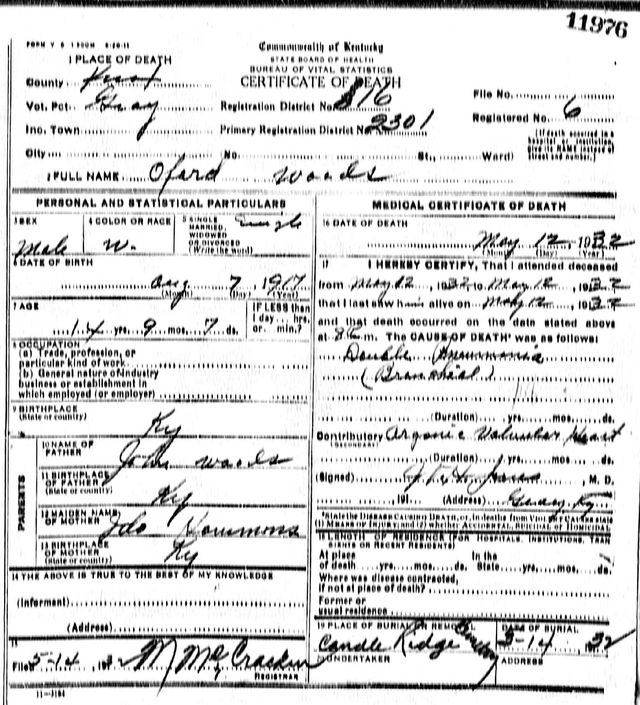 11976
FORM V S 1 500M 8-20-11
Commonwealth of Kentucky
STATE BOARD OF HEALTH
BUREAU OF VITAL STATISTICS
CERTIFICATE OF DEATH
1 PLACE OF DEATH
County
Vot. Pct. Gray
Inc. Town
City No. St., Ward)
Registration District No. 816
Primary Registration District No. 2301
File No.
Registered No. 6
(If death occurred in a hospital or institution, give its NAME instead of street and number.)
2 FULL NAME Oford Woods
PERSONAL AND STATISTICAL PARTICULARS
3 SEX Male
4 COLOR OR RACE W.
5 SINGLE, MARRIED, WIDOWED, OR DIVORCED (Write the word) single
6 DATE OF BIRTH
Aug 7, 1917
(Month) (Day) (Year)
7 AGE
14 yrs. 9 mos. 7 ds.
IF LESS than 1 day... hrs. or min.?
8 OCCUPATION
(a) Trade, profession, or particular kind of work
(b) General nature of industry business or establishment in which employed (or employer)
9 BIRTHPLACE (State or country) Ky
PARENTS
10 NAME OF FATHER John Woods
11 BIRTHPLACE OF FATHER (State or country) Ky
12 MAIDEN NAME OF MOTHER Ida
13 BIRTHPLACE OF MOTHER (State or country) Ky
14 THE ABOVE IS TRUE TO THE BEST OF MY KNOWLEDGE
(Informant)
(Address)
15
Filed 5-14, 1932 M McCracken
REGISTRAR
11-3184
MEDICAL CERTIFICATE OF DEATH
16 DATE OF DEATH
May 12, 1932
(Month) (Day) (Year)
17 I HEREBY CERTIFY, That I attended deceased
from May 12, 1932 to May 12, 1932
that I last saw him alive on May 12, 1932
and that death occurred on the date stated above
at m. The CAUSE OF DEATH was as follows:
Double Pneumonia
(Bronchial)
(Duration) yrs. mos. ds.
Contributory (SECONDARY) Organic Valvular Heart
(Duration) yrs. mos. ds.
(Signed) Jones, M. D.
, 191 (Address) Gray, Ky.
*State the DISEASE CAUSING DEATH, or, in deaths from VIOLENT CAUSES state (1) MEANS OF INJURY; and (2) whether ACCIDENTAL, SUICIDAL or HOMICIDAL
18 LENGTH OF RESIDENCE (FOR HOSPITALS, INSTITUTIONS, TRANSIENTS OR RECENT RESIDENTS)
At place of death yrs. mos. ds. In the State yrs. mos. ds.
Where was disease contracted, if not at place of death?
Former or usual residence
19 PLACE OF BURIAL OR REMOVAL Candle Ridge Cemetery
DATE OF BURIAL 5-14 1932
UNDERTAKER
ADDRESS